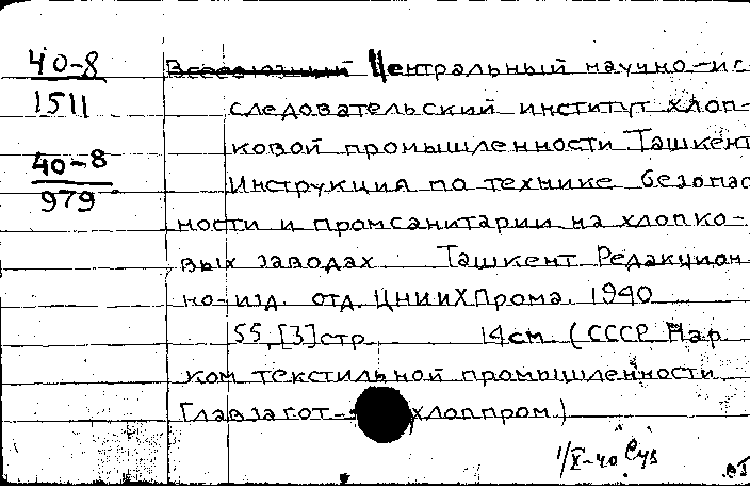 40-8
1511
40-8
979
Всесоюзный Центральный научно-ис-
следовательский институт хлоп-
ковой промышленности Ташкент
Инструкция по технике безопас
ности и промсанитарии на хлопко-
вых заводах Ташкент Редакцион
но-изд. отд. ЦНИИХПрома. 1940
55,[3]стр. 14см. (СССР Нар.
ком. текстильной промышленности
Главзагот- хлоппром.)
1/X-40